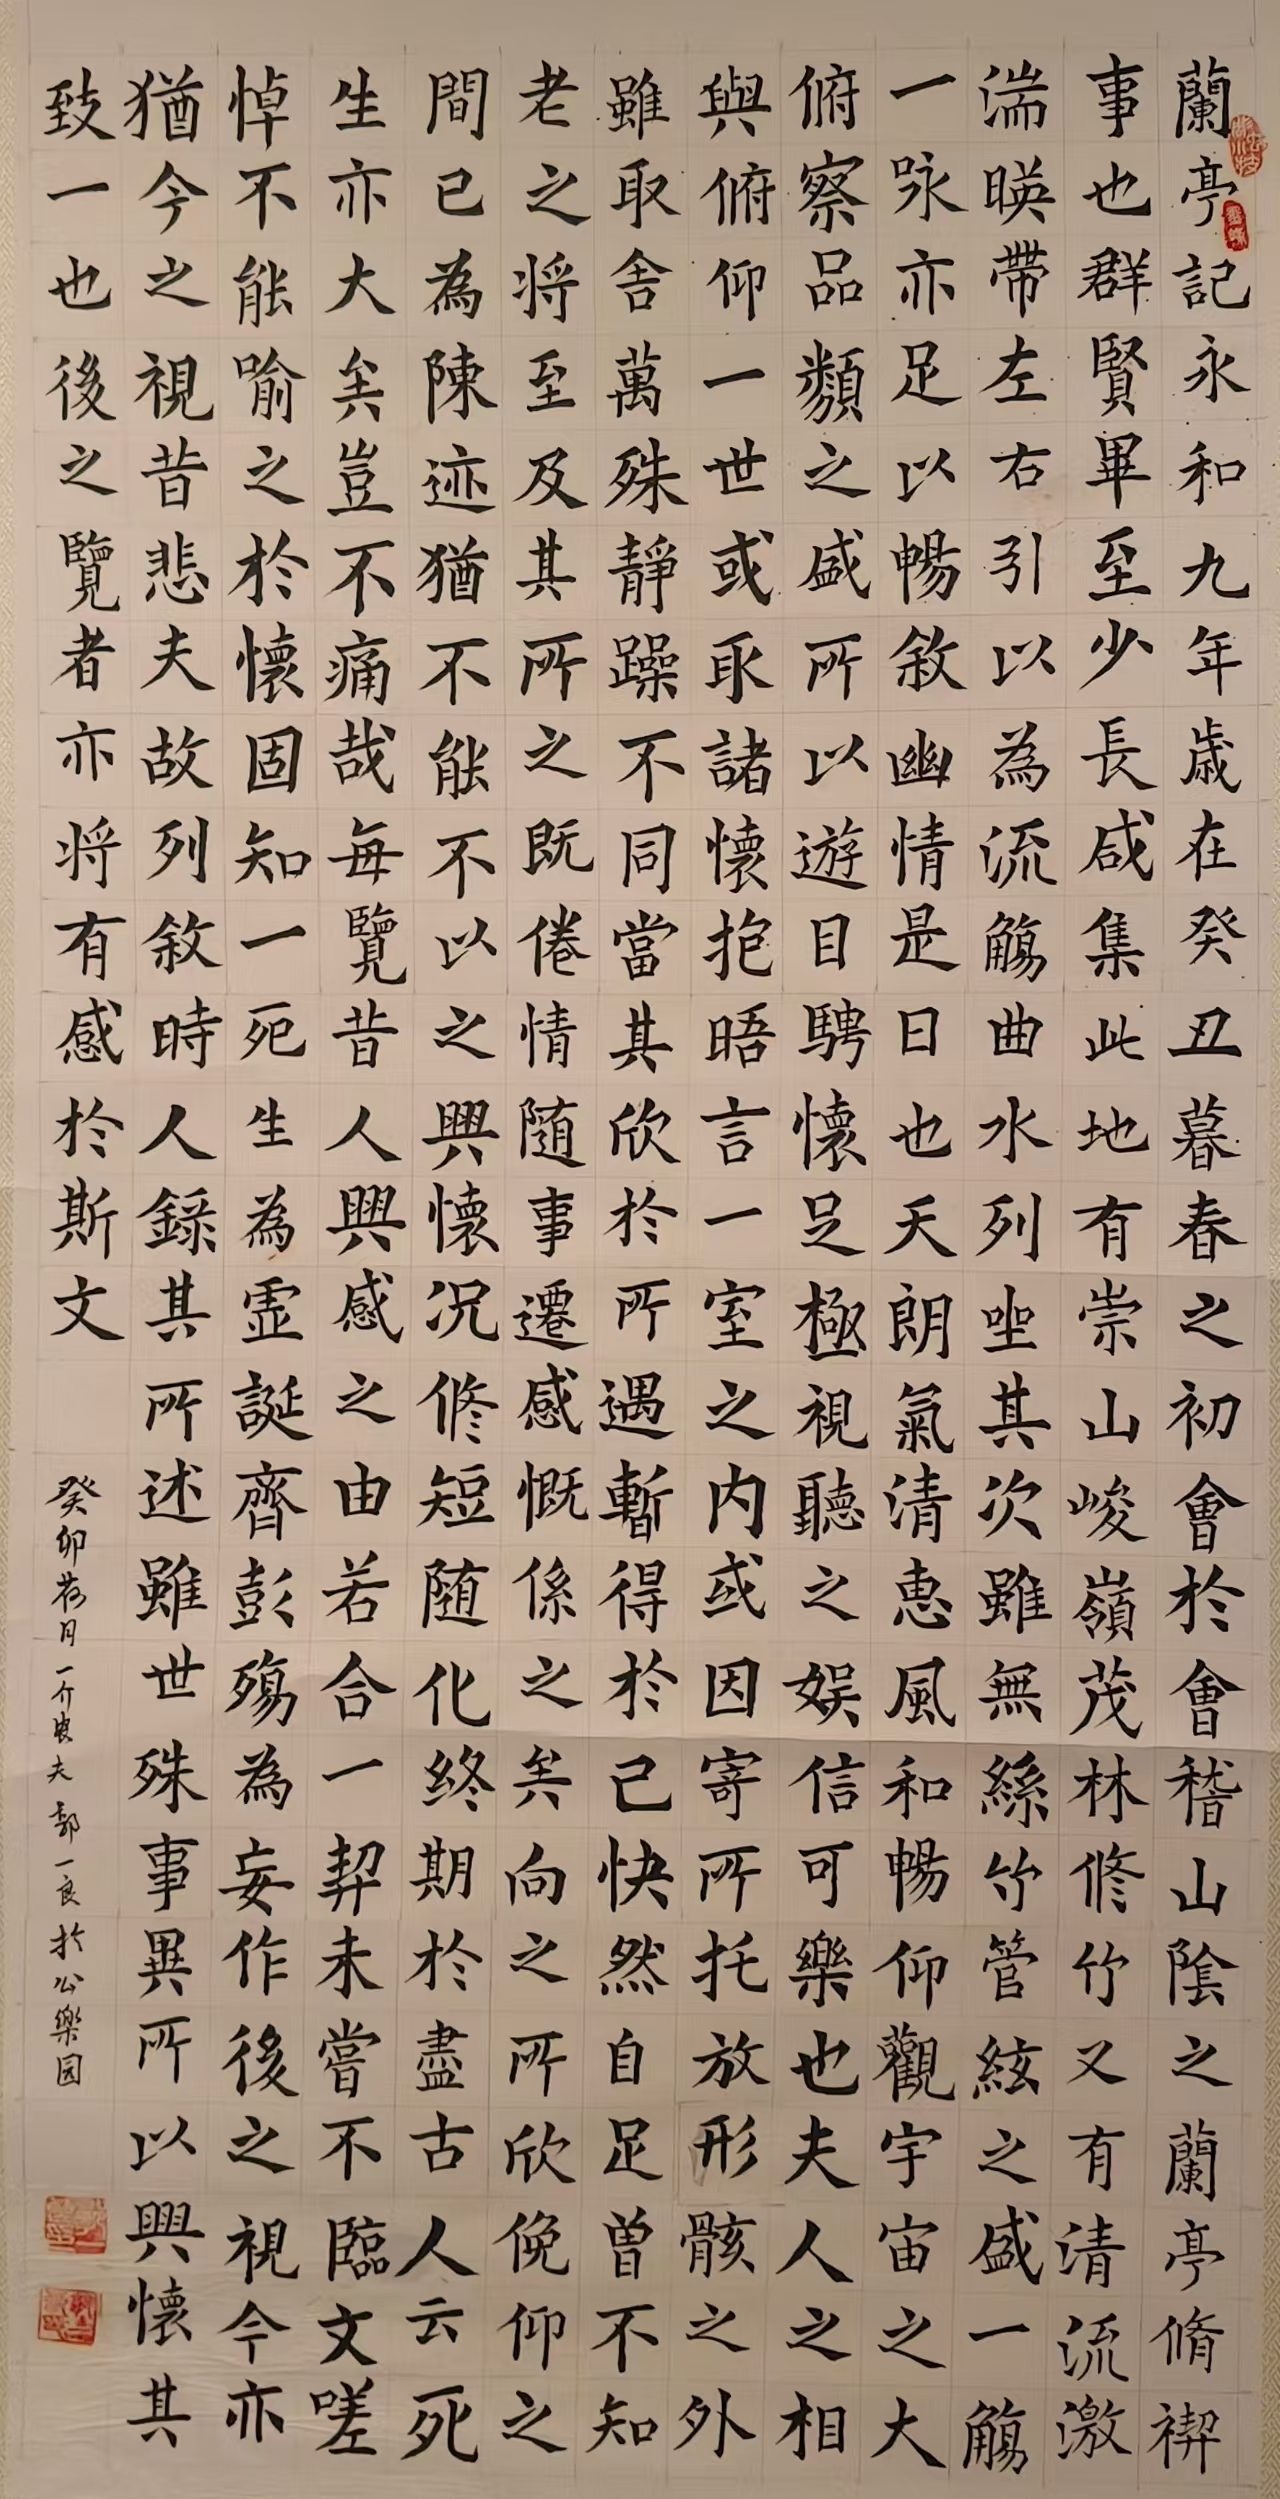 蘭亭記永和九年歲在癸丑暮春之初會於會稽山陰之蘭亭脩禊
事也群賢畢至少長咸集此地有崇山峻嶺茂林修竹又有清流激
湍暎帶左右引以為流觴曲水列坐其次雖無絲竹管絃之盛一觴
一咏亦足以暢敘幽情是日也天朗氣清惠風和暢仰觀宇宙之大
俯察品類之盛所以遊目騁懷足極視聽之娛信可樂也夫人之相
與俯仰一世或取諸懷抱晤言一室之内或因寄所托放形骸之外
雖取舍萬殊靜躁不同當其欣於所遇暫得於己快然自足曾不知
老之將至及其所之既倦情随事遷感慨係之矣向之所欣俛仰之
間已為陳迹猶不能不以之興懷况修短随化終期於盡古人云死
生亦大矣豈不痛哉每覽昔人興感之由若合一契未嘗不臨文嗟
悼不能喻之於懷固知一死生為虛誕齊彭殤為妄作後之視今亦
猶今之視昔悲夫故列敘時人錄其所述雖世殊事異所以興懷其
致一也後之覽者亦将有感於斯文
癸卯荷月一介農夫郭一良於公樂园